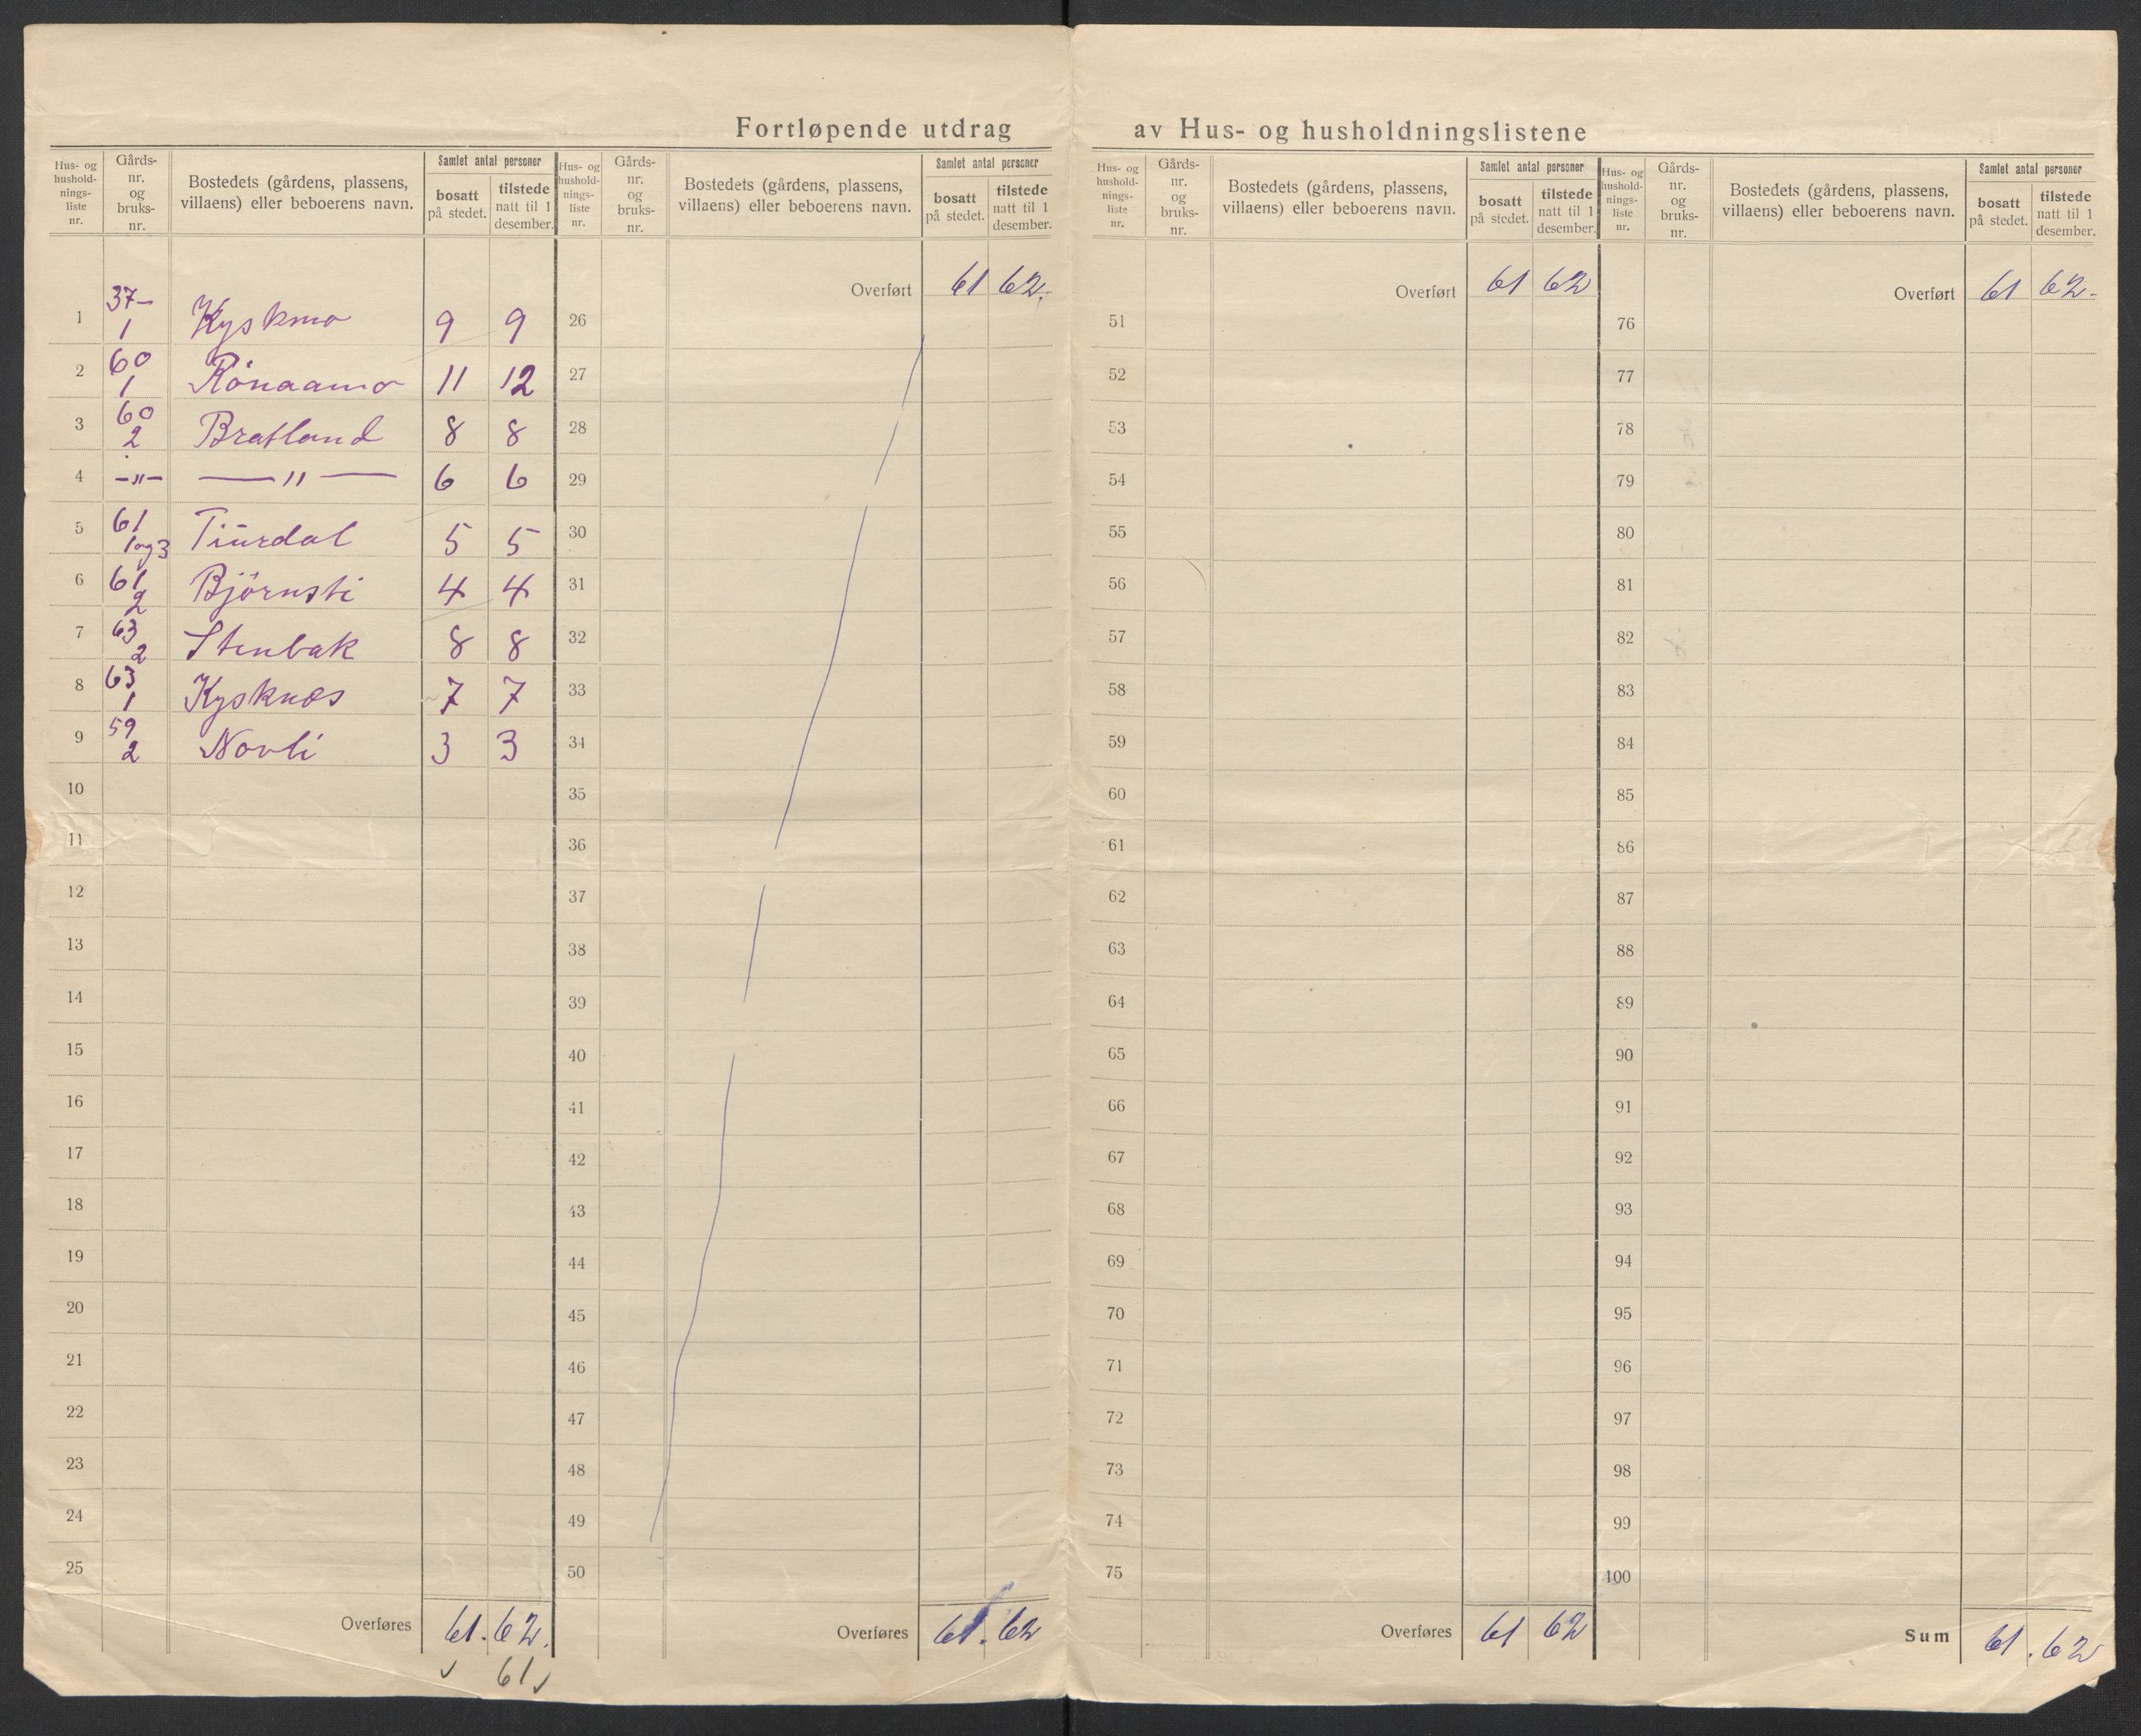 Fortløpende utdrag av Hus- og husholdningslistene
Hus- og
hushold-
nings-
liste
nr.
Gårds-
nr.
og
bruks-
nr.
Bostedets (gårdens, plassens,
villaens) eller beboerens navn.
Samlet antal personer
bosatt
på stedet.
tilstede
natt til 1
desember.
1 37- 1 Kyskmo 9 9
2 60 1 Rönaamo 11 12
3 60 2 Bratland 8 8
4 -"- —"— 6 6
5 61 1 og 3 Tiurdal 5 5
6 61 2 Björnsti 4 4
7 63 2 Stenbak 8 8
8 63 1 Kysknes 7 7
9 59 2 Novli 3 3
10
11
12
13
14
15
16
17
18
19
20
21
22
23
24
25
Overføres 61. 62.
61
Hus- og
hushold-
nings-
liste
nr.
Gårds-
nr.
og
bruks-
nr.
Bostedets (gårdens, plassens,
villaens) eller beboerens navn.
Samlet antal personer
bosatt
på stedet.
tilstede
natt til 1
desember.
Overført 61 62.
26
27
28
29
30
31
32
33
34
35
36
37
38
39
40
41
42
43
44
45
46
47
48
49
50
Overføres 61. 62
Hus- og
hushold-
nings-
liste
nr.
Gårds-
nr.
og
bruks-
nr.
Bostedets (gårdens, plassens,
villaens) eller beboerens navn.
Samlet antal personer
bosatt
på stedet.
tilstede
natt til 1
desember.
Overført 61 62
51
52
53
54
55
56
57
58
59
60
61
62
63
64
65
66
67
68
69
70
71
72
73
74
75
Overføres 61 62
Hus- og
hushold-
nings-
liste
nr.
Gårds-
nr.
og
bruks-
nr.
Bostedets (gårdens, plassens,
villaens) eller beboerens navn.
Samlet antal personer
bosatt
på stedet.
tilstede
natt til 1
desember.
Overført 61 62.
76
77
78
79
80
81
82
83
84
85
86
87
88
89
90
91
92
93
94
95
96
97
98
99
100
Sum 61. 62